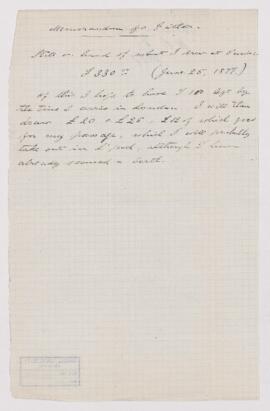 Memorandum for Father.
Still on hand of what I drew at
$ 330.00 (June 25, 1877.)
of this I hope to have $ 100 left by
the time I arrive in London. I will then
draw £20 or £25, of which goes
for my passage, which I will probably
take out in L'pool, although I have
already secured a berth.